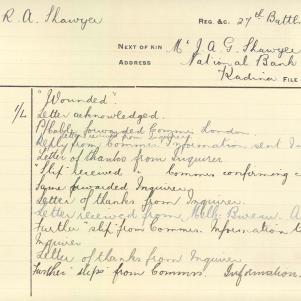 R. A. Shawyer
REG. &C. 27th Battl
NEXT OF KIN Mr J A G Shawyer
ADDRESS National Bank
Kadina FILE
"Wounded".
1/L Letter acknowledged.
forwarded Commrs London.
Letter received from Inquirer
Reply from Commr. Information sent I
Letter of thanks from Inquirer
"Slip" received commrs confirming c
Same forwarded Inquirer.
Letter of thanks from Inquirer.
Letter received from Bureau. A
Further "slip" from Commrs. Information to
Inquirer
Letter of thanks from Inquirer
Further "slips" from Commrs. Information